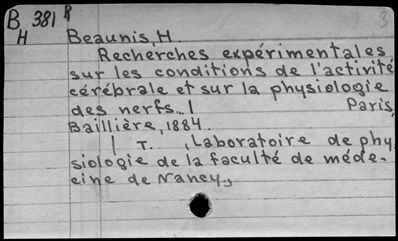 B 381 R 3
H Beaunis, H
Recherches expérimentales
sur les conditions de l'activité
cérébrale et sur la physiologie
des nerfs.. | Paris,
Baillière, 1884.
| T. , Laboratoire de phy
siologie de la faculté de méde-
cine de Nancy.,